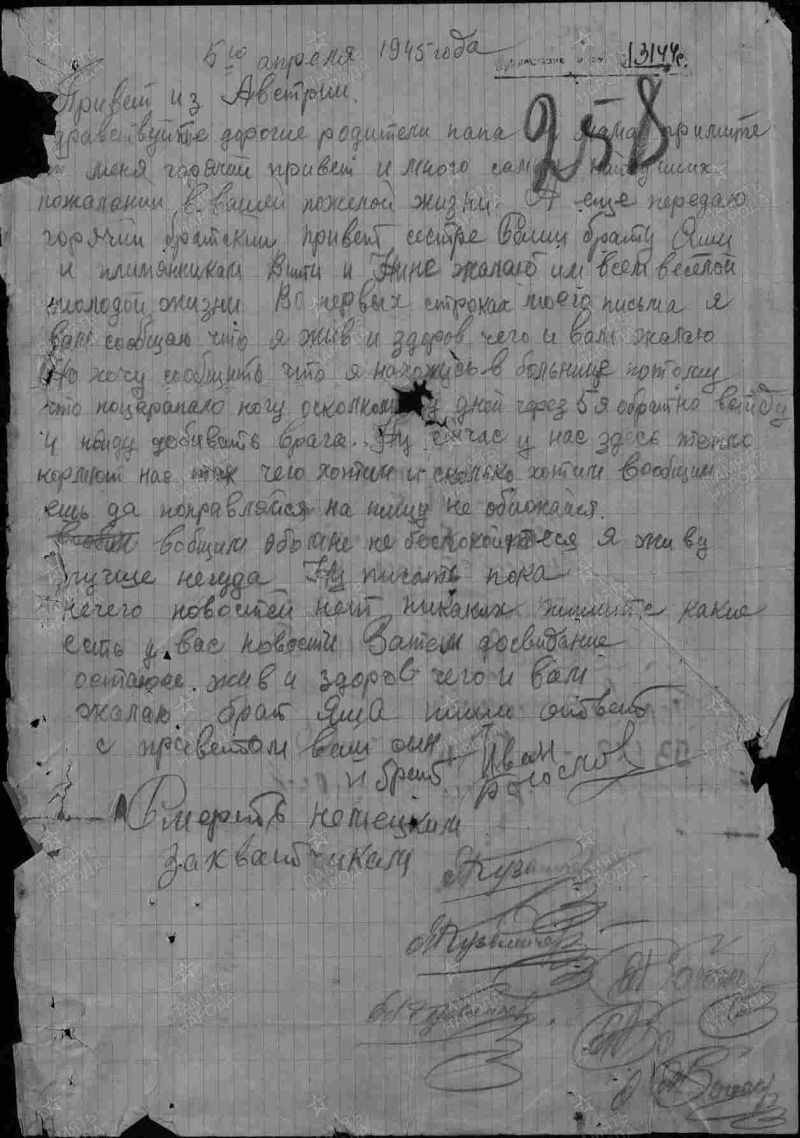 5го апреля 1945 года
13144с.
258
Привет из Австрии.
Здравствуйте дорогие родители папа и мама примите
от меня горячий привет и много самых наилучших
пожаланий в вашей пожелой жизни. А еще передаю
горячий братский привет сестре брату Яши
и плимянникам Вити и Нине жалают им всем веселой
молодой жизни Во первых строках моего письма я
вам сообщаю что я жив и здоров чего и вам жалаю
Но хочу сообщить что я нахожусь в больнице потому
что поцарапало ногу осколком дней через 5 я обратно вайду
и пойду добивать врага. Ну сичас у нас здесь тепло
кормют нас так чего хотим и сколько хотим вообщим
ешь да поправляйся на пищу не обижайся.
вобщим обо мне не беспокойтеся я живу
лучше некуда Ну писать пока
нечего новостей нет никаких пишите какие
есть у вас новости Затем досвидание
остаюсь жив и здоров чего и вам
жалаю. брат Яша пиши ответ
с приветом ваш сын
и брат Иван
Богослов
Смерть немецким
захватчикам